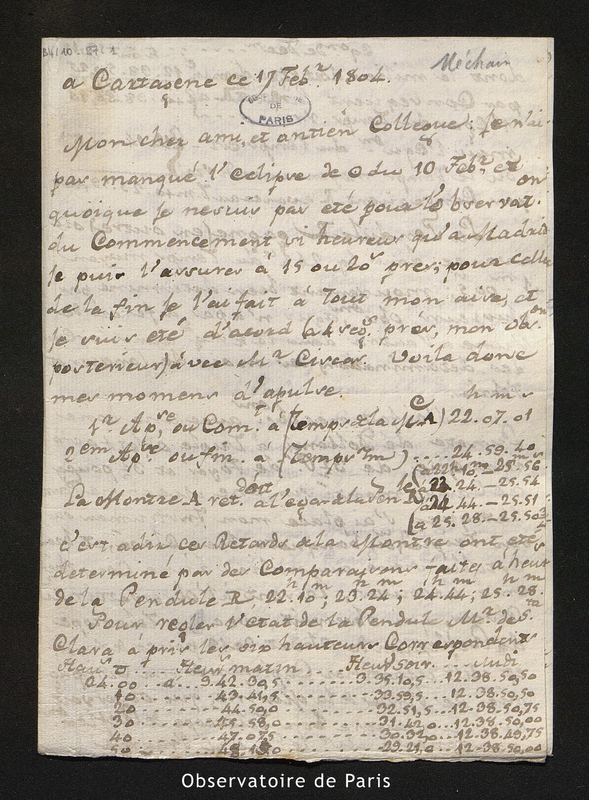 Méchain
a Cartagene ce 17 Febr. 1804.
PARIS
Mon cher ami, et antien Collegue: Je n'ai
pas manqué l'eclipse de du 10 Febr. et
quoique je ne suis pas été pour l'observaton.
du Commencement si heureux qu'a Madrid
Je puis l'assurer à 15 ou 20s pres; pour celle
de la fin je l'ai fait à tout mon aise, et
Je suis eté d'acord (a 4 segs prés, mon obson.
posterieur) avec Mr. Ciscar. Voila donc
mes momens d'apulse.
h m s
1r Apse ou Comt. à (Temps la M. A) 22.07.01
2em Apse ou fin. à (Temps m) .... 24.59.40
(a 22h 10m - 25.56
La Montre A ret. a l'egard R 23.24. - 25.54
a 24 44. - 25.51
(a 25. 28. - 25.50
c'est a dir ces Retards de la Montre ont eté
determiné par des Comparaisons faites à heur
h m h m h m h m
de la Pendule R 22.10; 23.24; 24.44; 25.28.
Pour regler l'etat de la Pendul Mr. de Sta
Clara à pris les six hauteurs Correspondents
Heur matin Heur soir midi
04.00 a 3.42.30,5 3.35.10,5 12.38.50,50
10 43.41,5 33.59,5 12.38.50,50
20 44.50,0 32.51,5 12.38.50,75
30 45.58,0 31.42,0 12.38.50,00
40 47.07,5 30.32,0 12.38.49,75
50 29.21,0 12.38.50,00
Observatoire de Paris